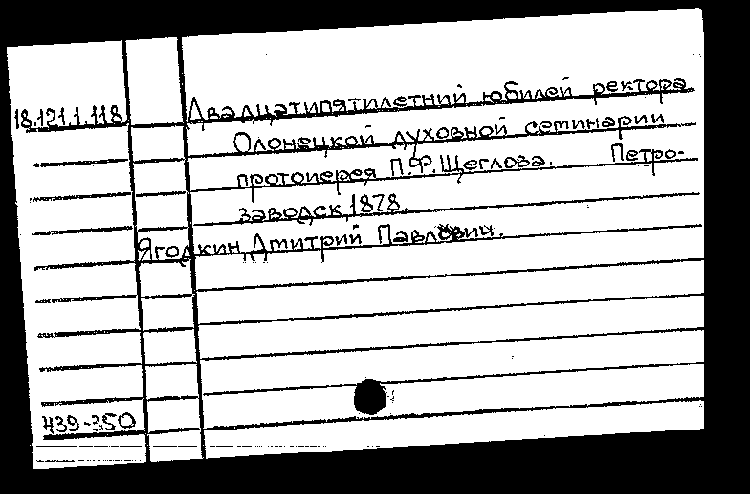 18.121.1.118 Двадцатипятилетний юбилей ректора
Олонецкой духовной семинарии
протоиерея П.Ф.Щеглова. Петро-
заводск,1878.
Ягодкин, Дмитрий Павлович.
439-350